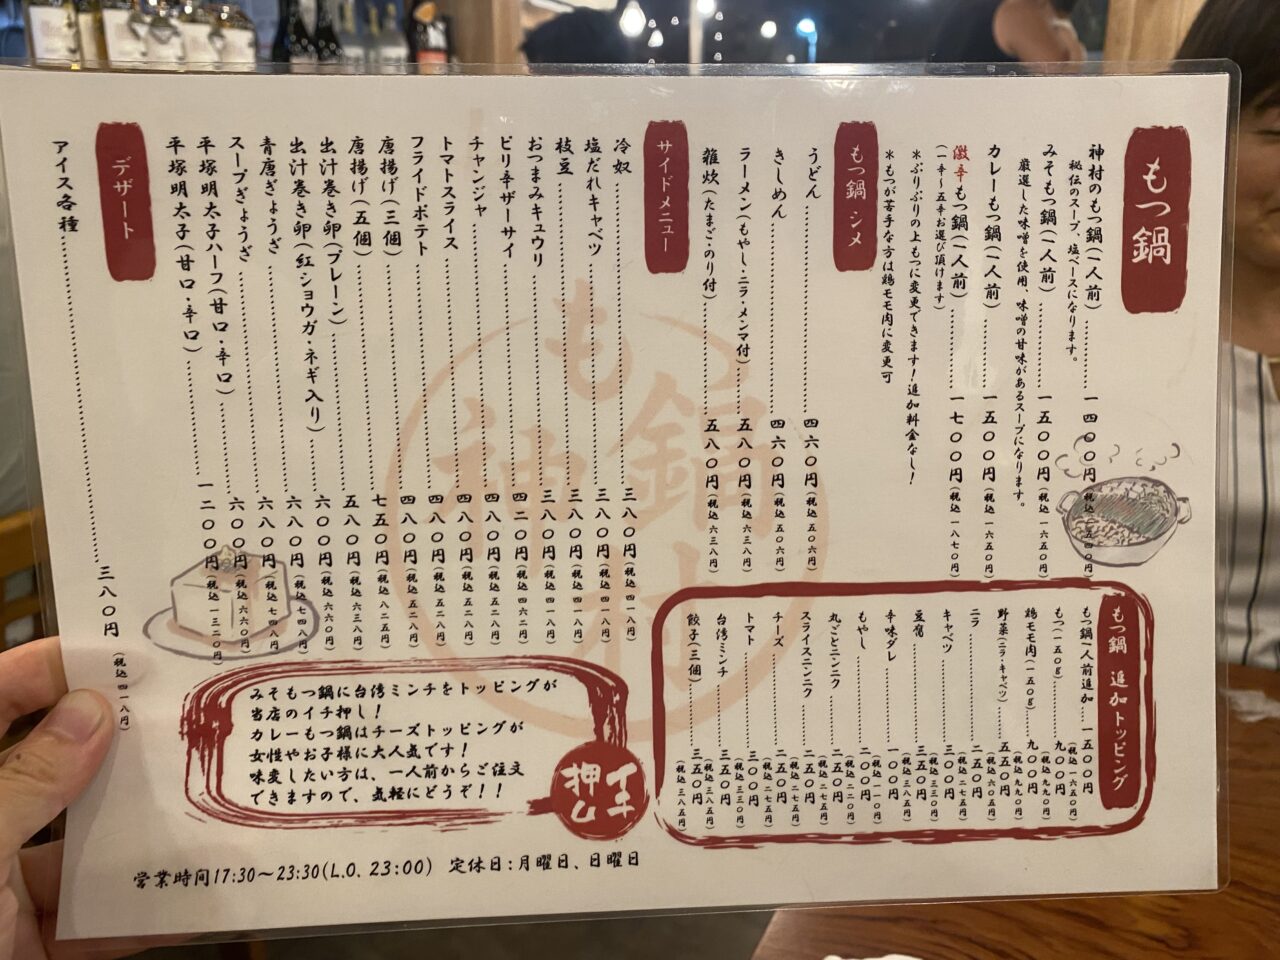 もつ鍋
神村のもつ鍋(一人前)……一四〇〇円(税込一五四〇円)
秘伝のスープ、塩ベースになります。
みそもつ鍋(一人前)……一五〇〇円(税込一六五〇円)
厳選した味噌を使用、味噌の甘味があるスープになります。
カレーもつ鍋(一人前)……一五〇〇円(税込一六五〇円)
激辛もつ鍋(一人前)……一七〇〇円(税込一八七〇円)
(一辛〜五辛お選び頂けます)
*ぷりぷりの上もつに変更できます!追加料金なし!
*もつが苦手な方は鶏モモ肉に変更可
もつ鍋 シメ
うどん……四六〇円(税込五〇六円)
きしめん……四六〇円(税込五〇六円)
ラーメン(もやし・ニラ・メンマ付)……五八〇円(税込六三八円)
雑炊(たまご・のり付)……五八〇円(税込六三八円)
もつ鍋 追加トッピング
もつ鍋一人前追加……一五〇〇円(税込一六五〇円)
もつ(一五〇g)……九〇〇円(税込九九〇円)
鶏モモ肉(一五〇g)……九〇〇円(税込九九〇円)
野菜(ニラ・キャベツ)……五五〇円(税込六〇五円)
ニラ……二五〇円(税込二七五円)
キャベツ……三〇〇円(税込三三〇円)
豆腐……三五〇円(税込三八五円)
辛味ダレ……一〇〇円(税込一一〇円)
もやし……二〇〇円(税込二二〇円)
丸ごとニンニク……二五〇円(税込二七五円)
スライスニンニク……二五〇円(税込二七五円)
チーズ……二五〇円(税込二七五円)
トマト……三〇〇円(税込三三〇円)
台湾ミンチ……三五〇円(税込三八五円)
餃子(三個)……三五〇円(税込三八五円)
サイドメニュー
冷奴……三八〇円(税込四一八円)
塩だれキャベツ……三八〇円(税込四一八円)
枝豆……三八〇円(税込四一八円)
おつまみキュウリ……三八〇円(税込四一八円)
ピリ辛ザーサイ……四二〇円(税込四六二円)
チャンジャ……四八〇円(税込五二八円)
トマトスライス……四八〇円(税込五二八円)
フライドポテト……四八〇円(税込五二八円)
唐揚げ(三個)……七五〇円(税込八二五円)
唐揚げ(五個)……五八〇円(税込六三八円)
出汁巻き卵(プレーン)……六〇〇円(税込六六〇円)
出汁巻き卵(紅ショウガ・ネギ入り)……六八〇円(税込七四八円)
青唐ぎょうざ……六八〇円(税込七四八円)
スープぎょうざ……六〇〇円(税込六六〇円)
平塚明太子ハーフ(甘口・辛口)……
平塚明太子(甘口・辛口)……一二〇〇円(税込一三二〇円)
デザート
アイス各種……三八〇円(税込四一八円)
みそもつ鍋に台湾ミンチをトッピングが
当店のイチ押し!
カレーもつ鍋はチーズトッピングが
女性やお子様に大人気です!
味変したい方は、一人前からご注文
できますので、気軽にどうぞ!!
イチ押し
営業時間17:30〜23:30(L.O. 23:00) 定休日:月曜日、日曜日
もつ鍋神村